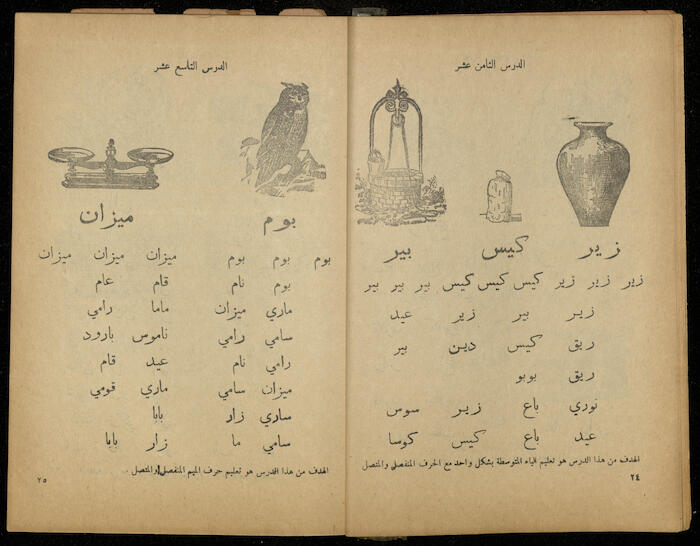 الدرس الثامن عشر
زير كيس بير
زير زير زير كيس كيس كيس بير بير بير
زير بير زير عيد
ريق كيس دين بير
ريق بوبو
نوري باع زير سوس
عيد باع كيس كوسا
الهدف من هذا الدرس هو تعليم الياء المتوسطة بشكل واحد مع الحرف المنفصل والمتصل
٢٤
الدرس التاسع عشر
بوم ميزان
بوم بوم بوم ميزان ميزان ميزان
بوم نام قام عام
ماري ميزان ماما رامي
سامي رامي ناموس بارود
رامي نام عيد قام
ميزان سامي ماري قومي
ساري زار بابا
سامي ما زار بابا
الهدف من هذا الدرس هو تعليم حرف الميم المنفصل والمتصل .
٢٥